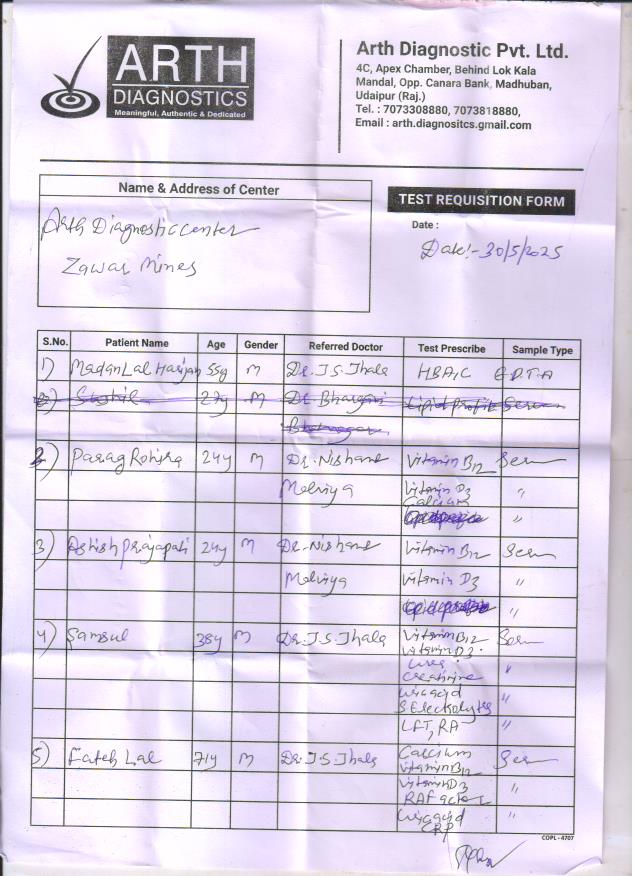 ARTH
DIAGNOSTICS
Meaningful, Authentic & Dedicated
Arth Diagnostic Pvt. Ltd.
4C, Apex Chamber, Behind Lok Kala
Mandal, Opp. Canara Bank, Madhuban,
Udaipur (Raj.)
Tel. : 7073308880, 7073818880,
Email : arth.diagnositcs.gmail.com
Name & Address of Center
TEST REQUISITION FORM
Arth Diagnostic center
Zawar Mines
Date :
Date:- 30/5/2025
S.No. Patient Name Age Gender Referred Doctor Test Prescribe Sample Type
1) Madan Lal Harijan 55y M Dr. J.S. Jhala HBA1C EDTA
Sushil 27y M Dr Bhargavi Lipid Profile Serum
Bhatnagar
2) Parag Rohira 24y M Dr. Nishant Vitamin B12 Serum
Melviya Vitamin D3 "
Calcium
"
3) Ashish Prajapati 24y M Dr. Nishant Vitamin B12 Serum
Melviya Vitamin D3 "
"
4) Samsul 38y M Dr. J.S. Jhala Vitamin B12 Serum
Vitamin D3
Urea "
Creatinine
Uric acid "
S Electrolytes
LFT, RA "
5) Fateh Lal 71y M Dr. J.S. Jhala Calcium Serum
Vitamin B12
Vitamin D3 "
RA Factor
Uric acid "
CRP
COPL - 4707